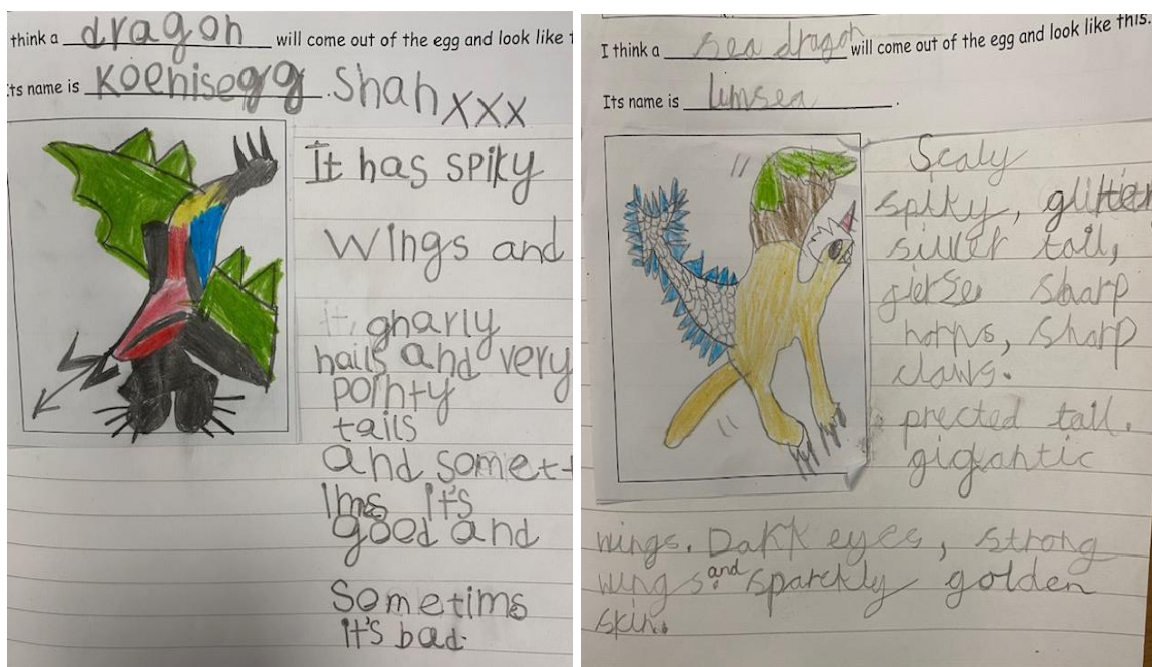 think a dragon will come out of the egg and look like t
ts name is Koenisegg. Shah xxx
It has spiky
wings and
gnarly
nails and very
pointy
tails
and somet
ims it's
goed and
sometims
it's bad.
I think a sea dragon will come out of the egg and look like this.
Its name is limsea.
Scaly
spiky, glitter
silver tail,
fierse sharp
horns, sharp
claws.
prected tail.
gigantic
wings. Dark eyes, strong
wings and sparckly golden
skin.